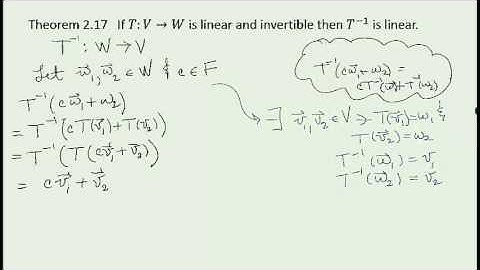 Theorem 2.17 If T: V → W is linear and invertible then T⁻¹ is linear.
T⁻¹ : W → V
Let w⃗₁, w⃗₂ ∈ W & c ∈ F
T⁻¹(cw⃗₁+w₂)
= T⁻¹(cT(v⃗₁)+T(v⃗₂))
= T⁻¹(T(cv⃗₁+v⃗₂))
= cv⃗₁+v⃗₂
T⁻¹(cw⃗₁+w₂) =
cT⁻¹(w⃗₁)+T⁻¹(w⃗₂)
∃ v⃗₁, v⃗₂ ∈ V ∋ T(v⃗₁)=w₁ &
T(v⃗₂)=w₂
T⁻¹(w⃗₁)=v₁
T⁻¹(w⃗₂)=v₂